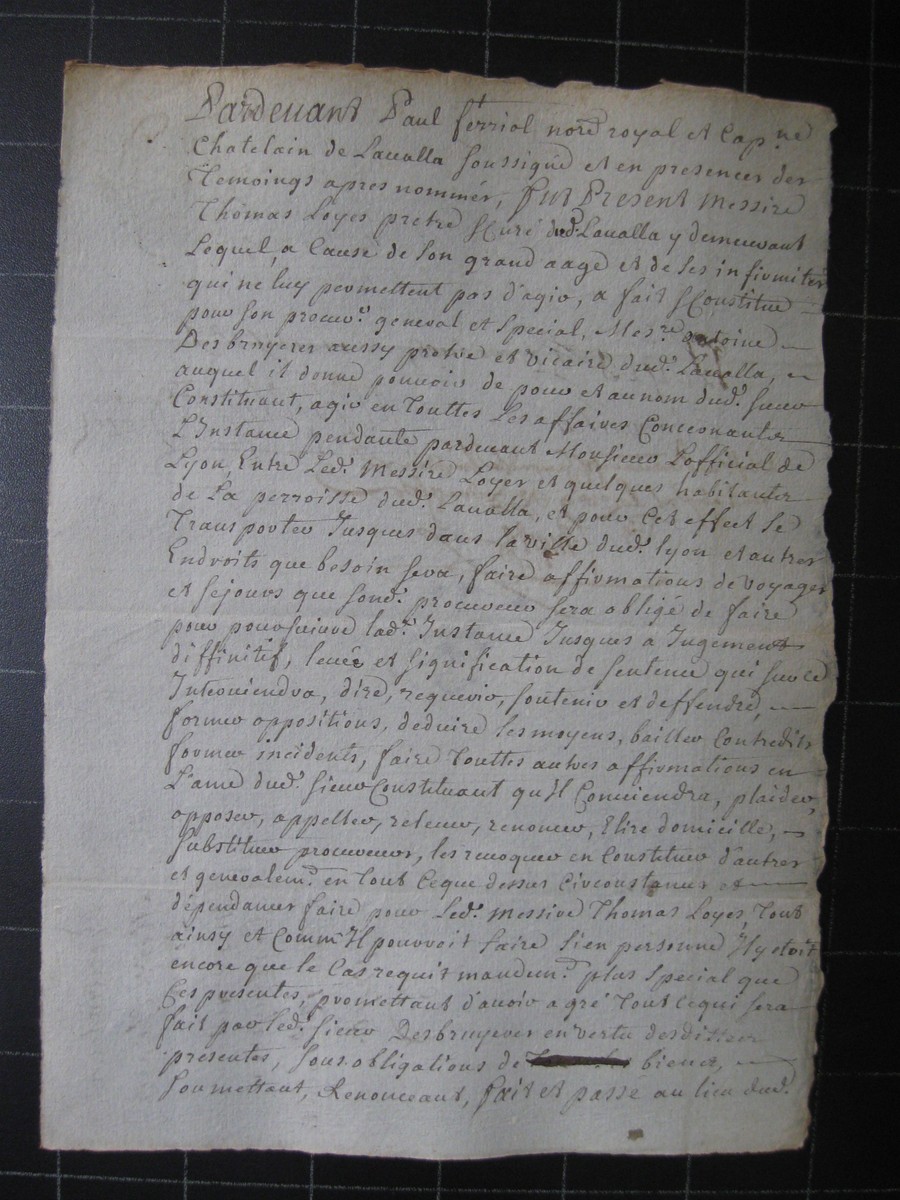 Pardevant Paul ferriol nore royal et Cap.ne
Chatelain de Lavalla soussigné et en presences des
Temoings apres nommés, fut Present Messire
Thomas Loyes pretre & Curé dud. Lavalla y demeurant
Lequel, a Cause de son grand aage et de ses infirmites
qui ne luy permettent pas d'agir, a fait & Constitue
pour son procur.r general et special, Mes.re antoine
Desbruyeres aussy pretre et vicaire dud. Lavalla,
auquel il donne pouvoir de pour et au nom dud. sieur
Constituant, agir en touttes Les affaires Concernantes
L'Instance pendante pardevant Monsieur L'official de
Lyon, Entre Led. Messire Loyes et quelques habitantes
de La perroisse dud. Lavalla, et pour Cet effect se
Transporter Jusques dans la ville dud. lyon et autres
Endroits que besoin sera, faire affirmations de voyages
et séjours que sond. procureur sera obligé de faire
pour poursuivre lad. Instance Jusques a Jugement
diffinitif, levée et signification de sentence qui sur ce
Interviendra, dire, requerir, soutenir et deffendre,
former oppositions, deduire les moyens, bailler Contredits
former incidents, faire touttes autres affirmations en
L'ame dud. sieur Constituant qu'Il Conviendra, plaider,
opposer, appeller, relever, renoncer, Elire domicille,
substituer procureurs, les revoquer en Constituer d'autres
et generalem.t en tout Ceque dessus Circonstances et
dépendances faire pour Led. Messire Thomas Loyes, tout
ainsy et Comm'Il pouvroit faire si en personne Il y etoit
encore que le Cas requit mandem.t plus special que
Ces presentes, promettant d'avoir agré tout cequi sera
fait par led. sieur Desbruyeres en vertu desdittes
présentes, sous obligations de biens,
soumettant, Renonceant, fait et passe au lieu dud.